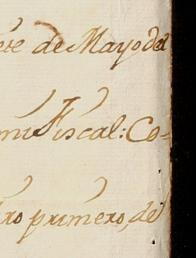 de Mayo del
mi Fiscal: Co-
primero, de